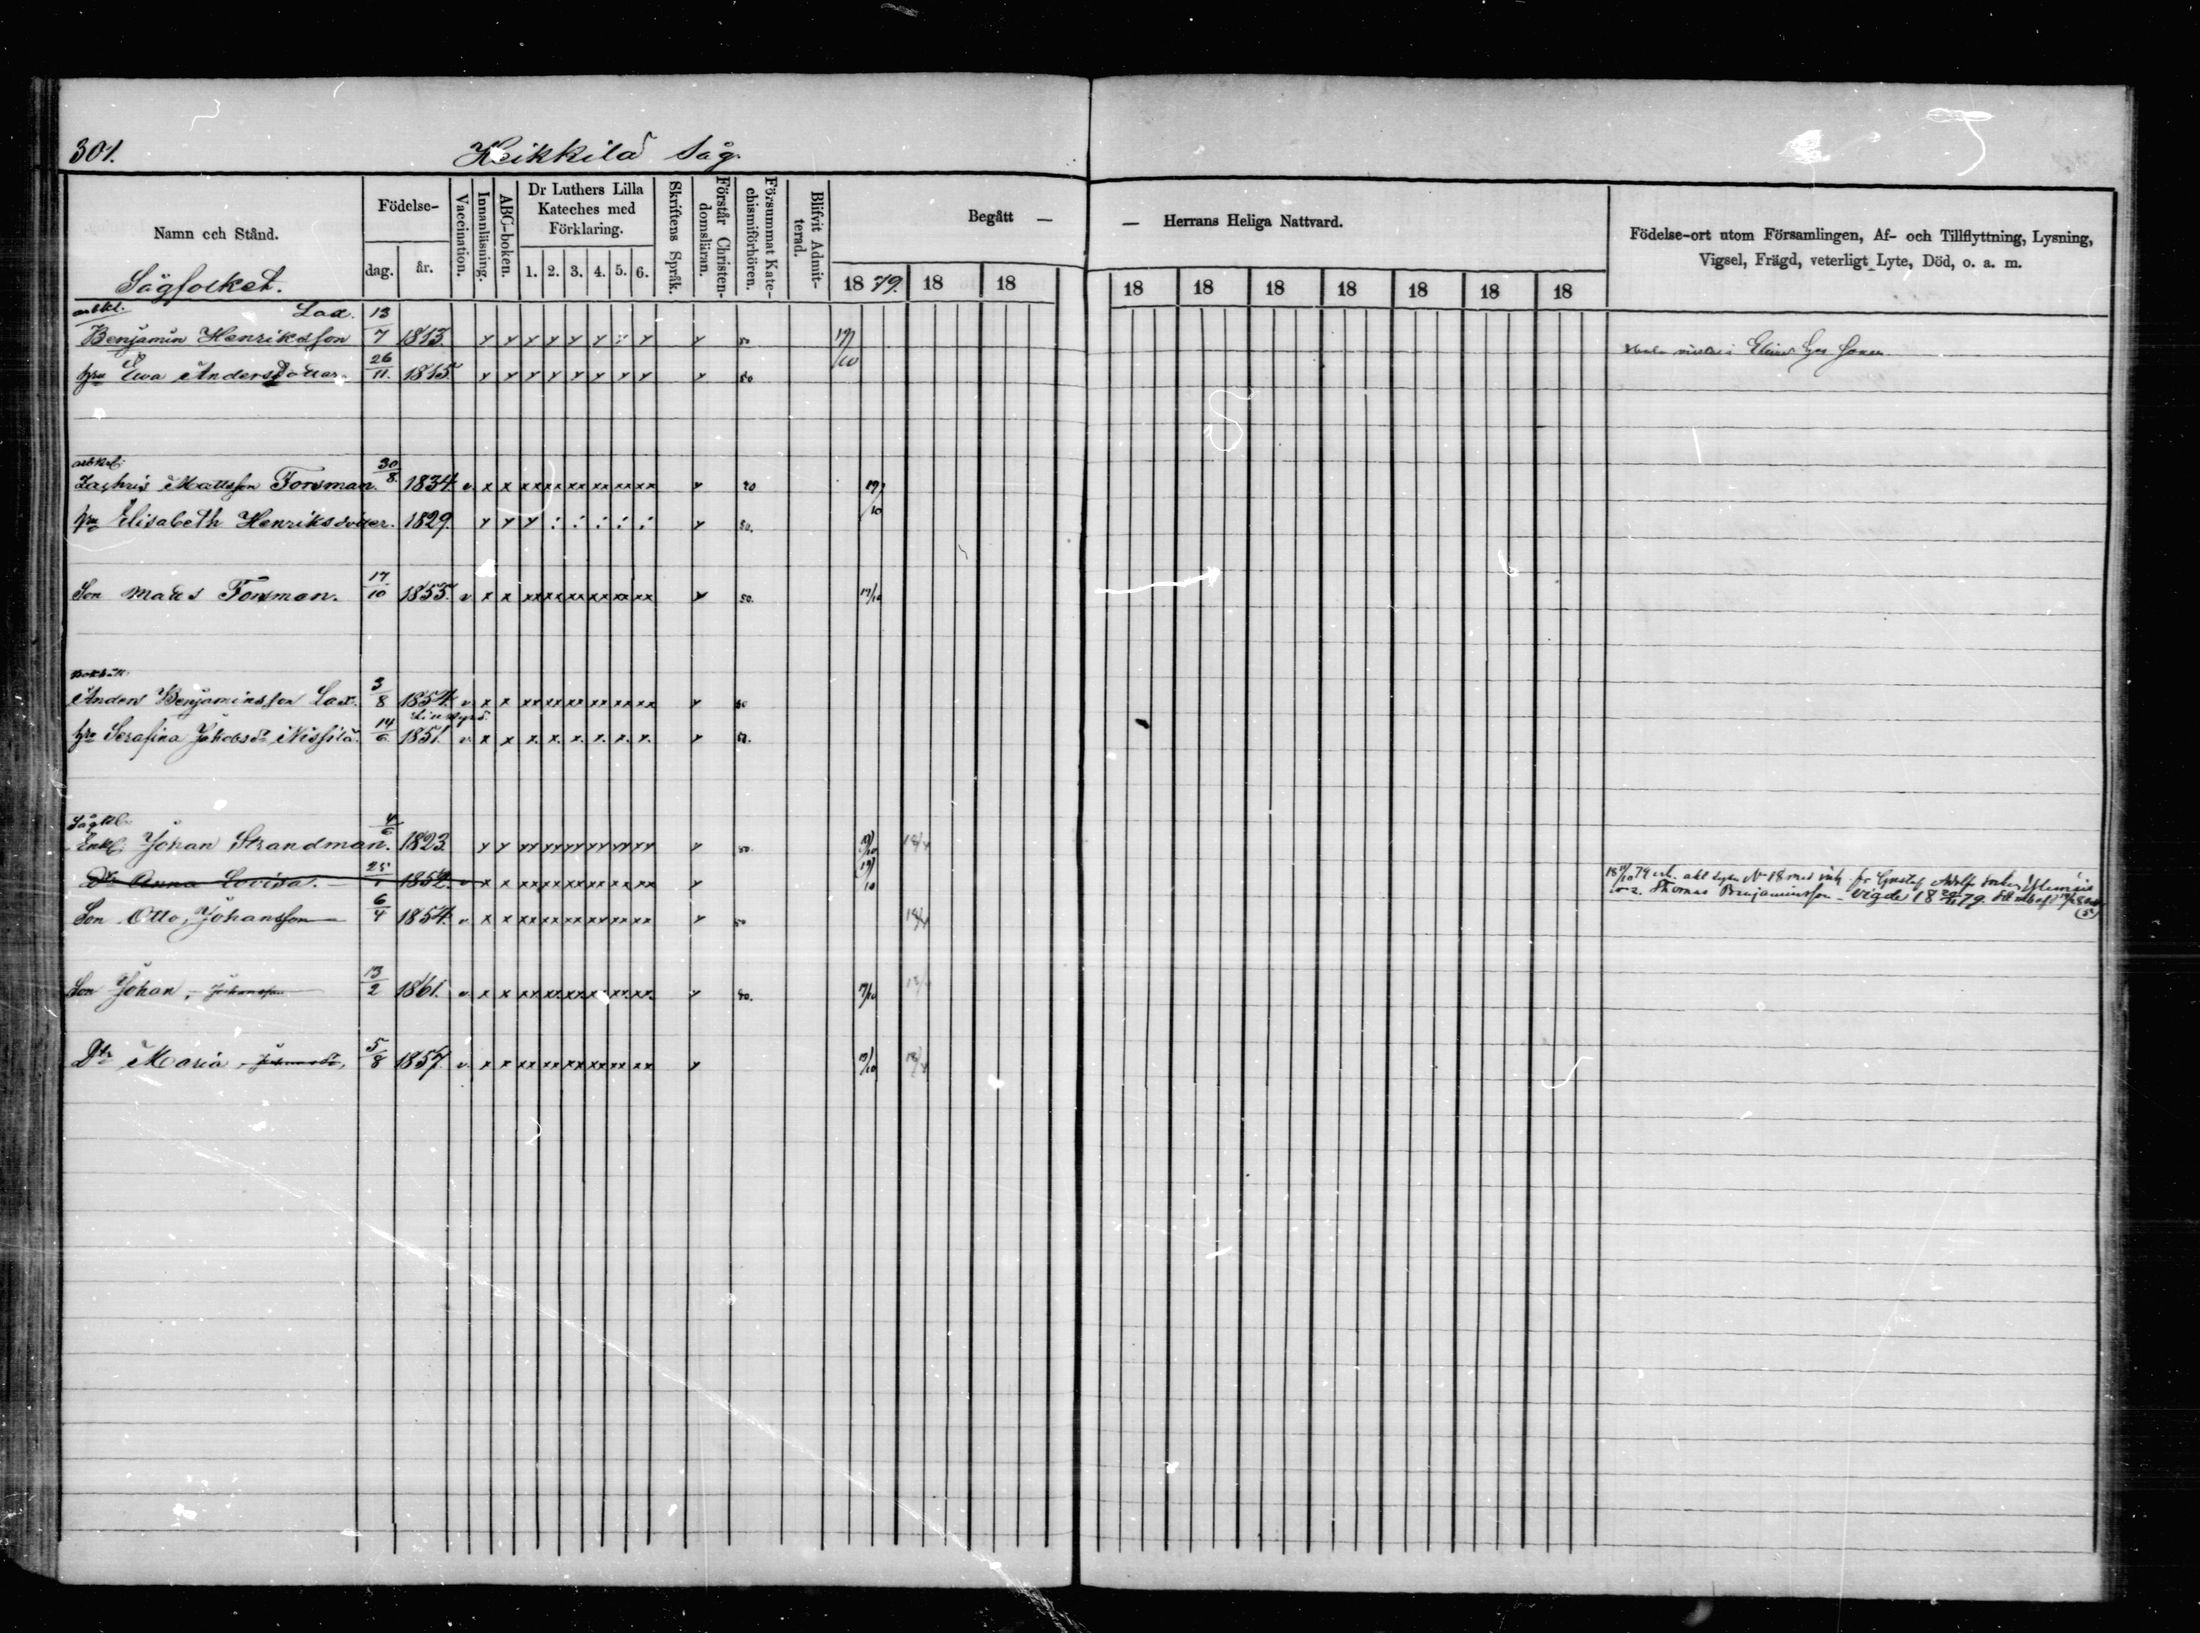 301.
Heikkilä Såg.
Namn och Stånd.
Födelse-
dag.
år.
Vaccination.
Innanläsning.
ABC-boken.
Dr Luthers Lilla
Kateches med
Förklaring.
1. 2. 3. 4. 5. 6.
Skriftens Språk.
Förstår Christen-
domsläran.
Försummat Kate-
chismiförhören.
Blifvit Admit-
terad.
Begått —
— Herrans Heliga Nattvard.
Födelse-ort utom Församlingen, Af- och Tillflyttning, Lysning,
Vigsel, Frägd, veterligt Lyte, Död, o. a. m.
1879. 18 18 18 18 18 18 18 18 18
Sågfolket.
arbkl. Lax. 13
Benjamin Henriksson 7 1813. y y y y y y y y 80 19/10
hu Ewa Andersdotter. 26/11. 1815. y y y y y y y y y 80
arbkl.
Zachris Mattsson Forsman. 30/8. 1834. v. x x xx xx xx xx xx xx y 80 19/10
hu Elisabeth Henriksdotter. 1829. y y y : : : : : y 80.
Son Matts Forsman. 17/10 1855. v. x x xx xx xx xx xx xx y 80. 19/10
Anders Benjaminsson Lax. 3/8 1854. v. x x xx xx xx xx xx xx y 80
hu Serafina Jakobsdr Nissilä. 14/6 1851. v. x x x. x. x. x. x. x. y
Enkl. Johan Strandman. 4/6 1823 y y yy yy yy yy yy yy y 80. 19/10 18/4
Dr Anna Lovisa. 25/1 1852. v x x xx xx xx xx xx xx y 19/10
Thomas Benjaminsson - vigde 18 79.
Son Otto, Johansson 6/4 1854. v. x x xx xx xx xx xx xx y 80 18/4
Son Johan, Johansson 13/2 1861. v. x x xx xx xx xx xx xx y 80. 19/10
Dtr Maria, 5/8 1857. v. x x xx xx xx xx xx xx y 19/10